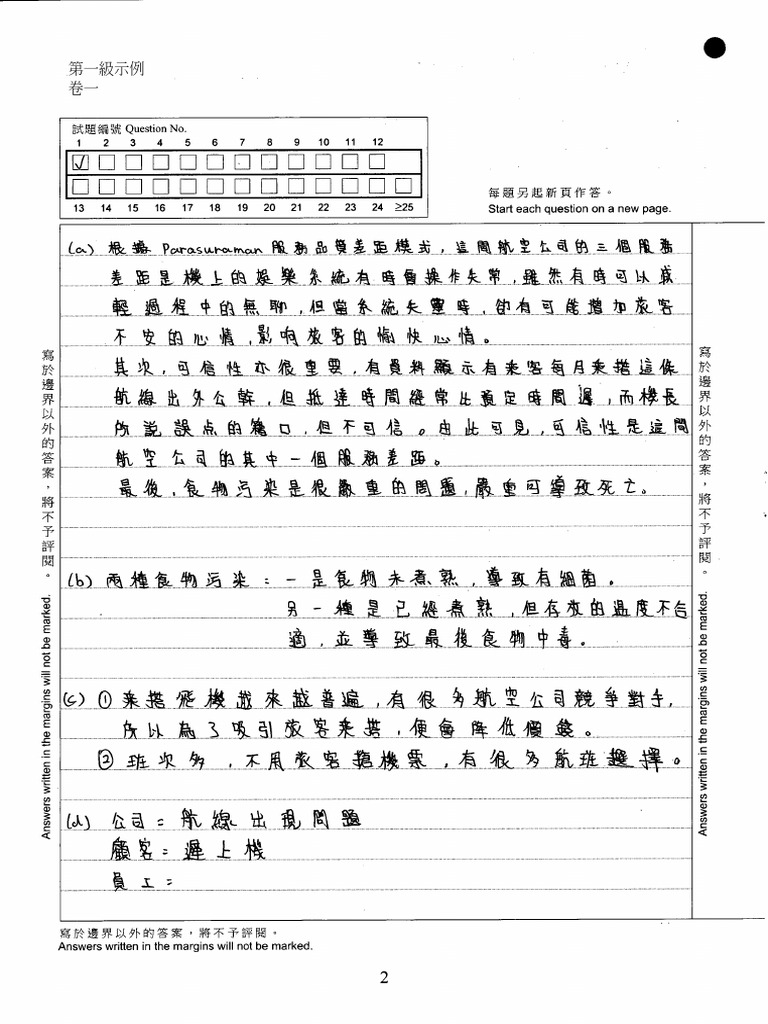 第一級示例
卷一
試題編號 Question No.
1 2 3 4 5 6 7 8 9 10 11 12
✓
13 14 15 16 17 18 19 20 21 22 23 24 ≥25
每題另起新頁作答。
Start each question on a new page.
(a) 根據 Parasuraman 服務品質差距模式，這間航空公司的三個服務
差距是機上的娛樂系統有時會操作失常，雖然有時可以減
輕過程中的無聊，但當系統失靈時，卻有可能增加旅客
不安的心情，影响旅客的愉快心情。
其次，可信性亦很重要，有資料顯示有乘客每月乘搭這條
航線出外公幹，但抵達時間經常比預定時間遲，而機長
所說誤点的藉口，但不可信。由此可見，可信性是這間
航空公司的其中一個服務差距。
最後，食物污染是很嚴重的問題，嚴重可導致死亡。
(b) 兩種食物污染：一是食物未煮熟，導致有細菌。
另一種是已經煮熟，但存放的温度不合
適，並導致最後食物中毒。
(c) ① 乘搭飛機越來越普遍，有很多航空公司競爭對手，
所以為了吸引旅客乘搭，便會降低價錢。
② 班次多，不用旅客搶機票，有很多航班選擇。
(d) 公司：航線出現問題
顧客：遲上機
員工：
寫於邊界以外的答案，將不予評閱。
Answers written in the margins will not be marked.
寫於邊界以外的答案，將不予評閱。
Answers written in the margins will not be marked.
寫於邊界以外的答案，將不予評閱。
Answers written in the margins will not be marked.
2